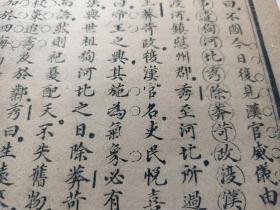 曰不圖今日復見漢官威儀由
徇河北秀除莽苛政復漢
渡河鎮慰州郡秀至河北所過
莽苛政復漢官名吏民悅喜
曰帝王之興其施為氣象必有
與世祖徇河北之日除莽苛
語歟則祀夏配天不失舊物
追及於鄴秀曰生遠